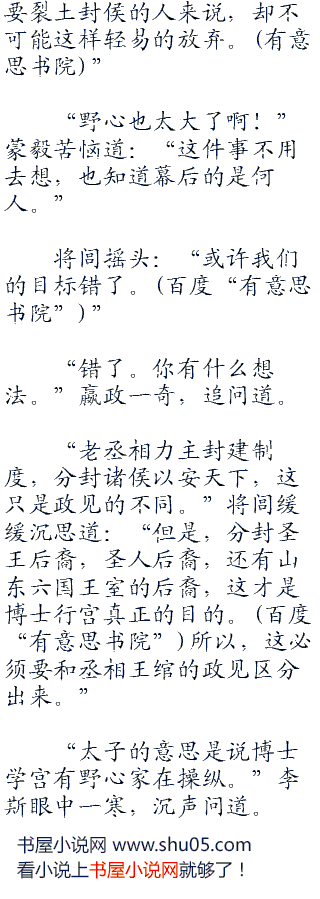 要裂土封侯的人来说，却不
可能这样轻易的放弃。(有意
思书院)”
“野心也太大了啊！”
蒙毅苦恼道：“这件事不用
去想，也知道幕后的是何
人。”
将闾摇头：“或许我们
的目标错了。(百度“有意思
书院”)”
“错了。你有什么想
法。”嬴政一奇，追问道。
“老丞相力主封建制
度，分封诸侯以安天下，这
只是政见的不同。”将闾缓
缓沉思道：“但是，分封圣
王后裔，圣人后裔，还有山
东六国王室的后裔，这才是
博士行宫真正的目的。(百度
“有意思书院”)所以，这必
须要和丞相王绾的政见区分
出来。”
“太子的意思是说博士
学宫有野心家在操纵。”李
斯眼中一寒，沉声问道。
书屋小说网 www.shu05.com
看小说上书屋小说网就够了！